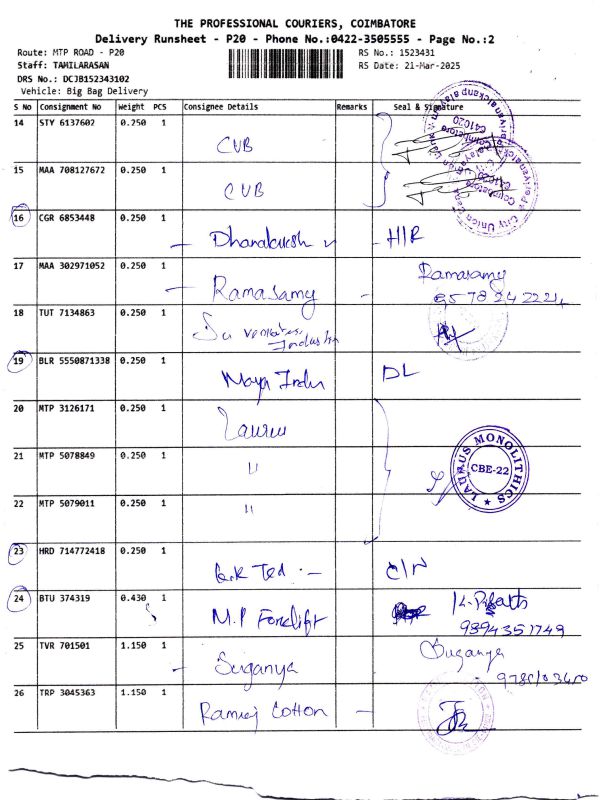 THE PROFESSIONAL COURIERS, COIMBATORE
Delivery Runsheet - P20 - Phone No.:0422-3505555 - Page No.:2
Route: MTP ROAD - P20
RS No.: 1523431
Staff: TAMILARASAN
RS Date: 21-Mar-2025
DRS No.: DCJB152343102
Vehicle: Big Bag Delivery
S No Consignment No Weight PCS Consignee Details Remarks Seal & Signature
14 STY 6137602 0.250 1 CUB
15 MAA 708127672 0.250 1 CUB
City Union Bank
Coimbatore
641020
16 CGR 6853448 0.250 1 H/R
17 MAA 302971052 0.250 1 Ramasamy - Ramasamy
9578242224
18 TUT 7134863 0.250 1
19 BLR 5550871338 0.250 1 DL
20 MTP 3126171 0.250 1 Laurus
21 MTP 5078849 0.250 1 "
22 MTP 5079011 0.250 1 "
LAURUS MONOLITHICS
CBE-22
23 HRD 714772418 0.250 1
24 BTU 374319 0.430 1 M.P Forklift
9894351749
25 TVR 701501 1.150 1 Suganya Suganya
26 TRP 3045363 1.150 1 Ramraj Cotton -